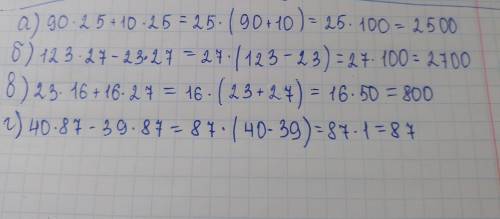 а) 90·25+10·25 = 25·(90+10) = 25·100 = 2500
б) 123·27-23·27 = 27·(123-23) = 27·100 = 2700
в) 23·16+16·27 = 16·(23+27) = 16·50 = 800
г) 40·87-39·87 = 87·(40-39) = 87·1 = 87